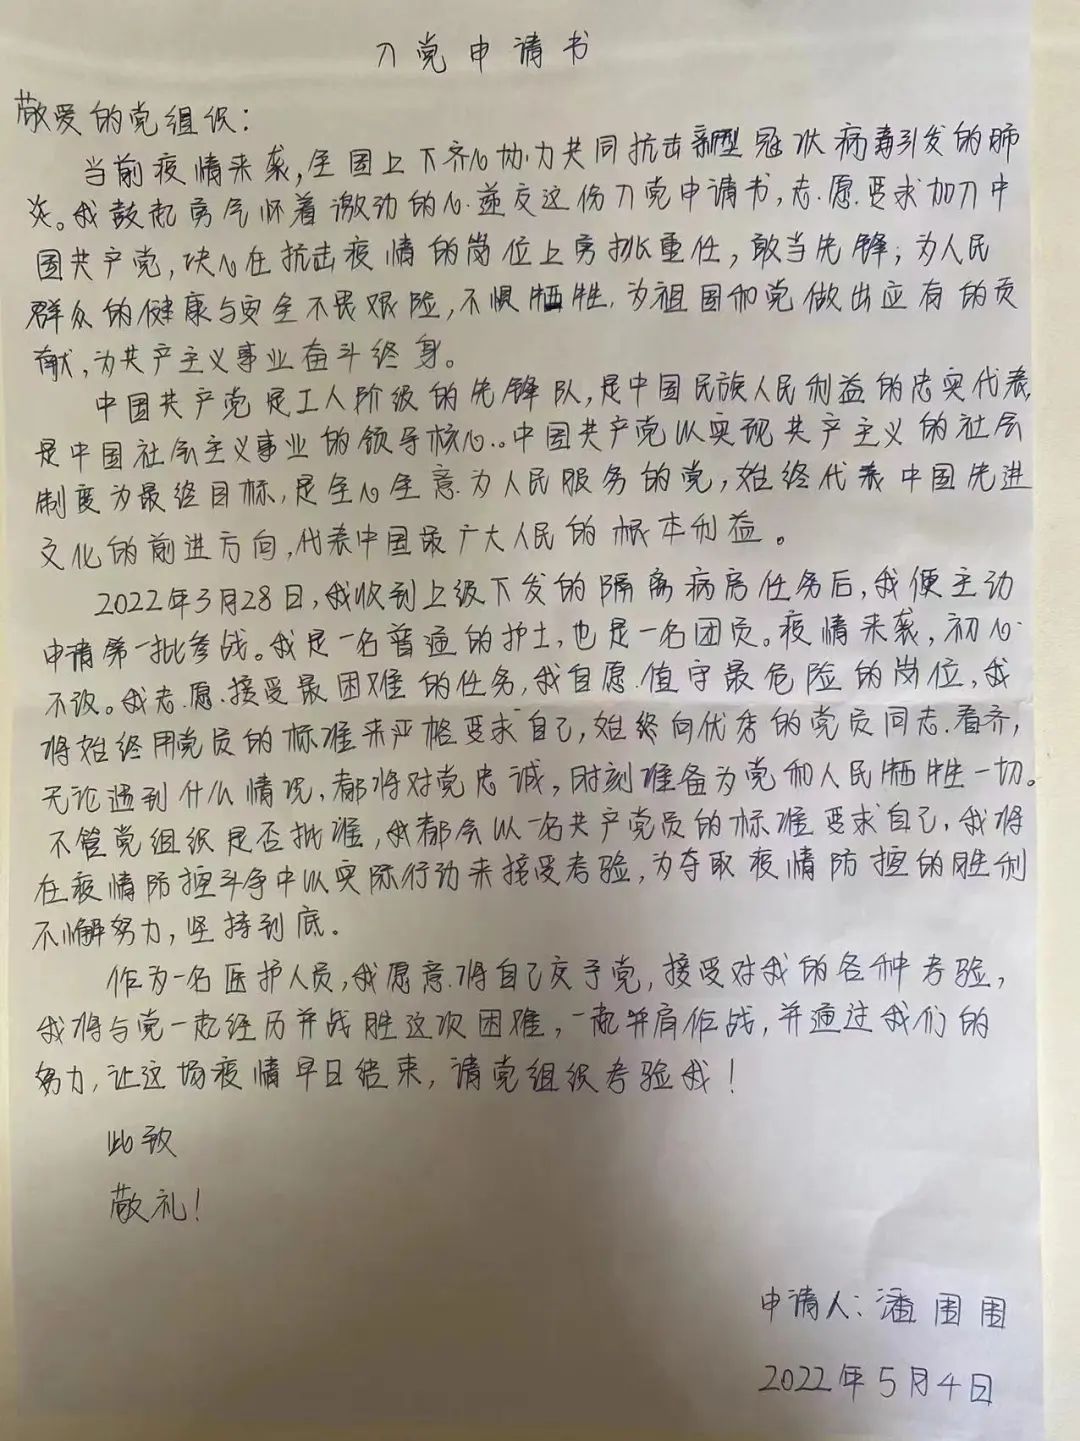 入党申请书
敬爱的党组织：
当前疫情来袭，全国上下齐心协力共同抗击新型冠状病毒引发的肺
炎。我鼓起勇气怀着激动的心递交这份入党申请书，志愿要求加入中
国共产党，决心在抗击疫情的岗位上勇挑重任，敢当先锋；为人民
群众的健康与安全不畏艰险，不惧牺牲，为祖国和党做出应有的贡
献，为共产主义事业奋斗终身。
中国共产党是工人阶级的先锋队，是中国民族人民利益的忠实代表，
是中国社会主义事业的领导核心。中国共产党以实现共产主义的社会
制度为最终目标，是全心全意为人民服务的党，始终代表中国先进
文化的前进方向，代表中国最广大人民的根本利益。
2022年3月28日，我收到上级下发的隔离病房任务后，我便主动
申请第一批参战。我是一名普通的护士，也是一名团员。疫情来袭，初心
不改。我志愿接受最困难的任务，我自愿值守最危险的岗位，我
将始终用党员的标准来严格要求自己，始终向优秀的党员同志看齐，
无论遇到什么情况，都将对党忠诚，时刻准备为党和人民牺牲一切。
不管党组织是否批准，我都会以一名共产党员的标准要求自己，我将
在疫情防控斗争中以实际行动来接受考验，为夺取疫情防控的胜利
不懈努力，坚持到底。
作为一名医护人员，我愿意将自己交予党，接受对我的各种考验，
我将与党一起经历并战胜这次困难，一起并肩作战，并通过我们的
努力，让这场疫情早日结束，请党组织考验我！
此致
敬礼！
申请人：潘围围
2022年5月4日